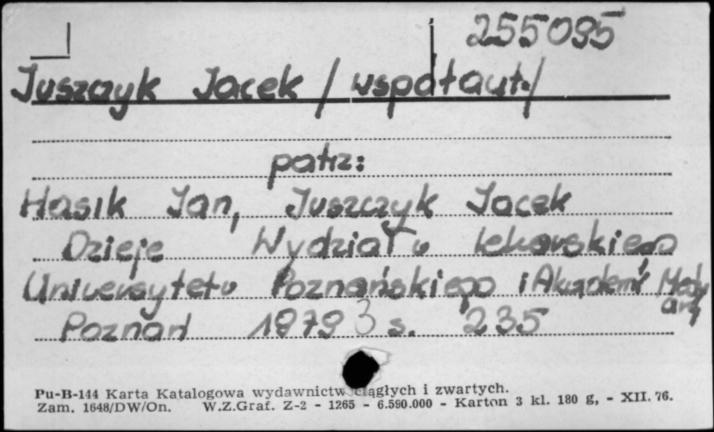 255095
Juszczyk Jacek /współaut./
patrz:
Hasik Jan, Juszczyk Jacek
Dzieje Wydziału lekarskiego
Uniwersytetu Poznańskiego i Akademi Medy
Poznań 1979 s. 235
Pu-B-144 Karta Katalogowa wydawnictw ciągłych i zwartych.
Zam. 1648/DW/On. W.Z.Graf. Z-2 - 1265 - 6.590.000 - Karton 3 kl. 180 g, - XII. 76.